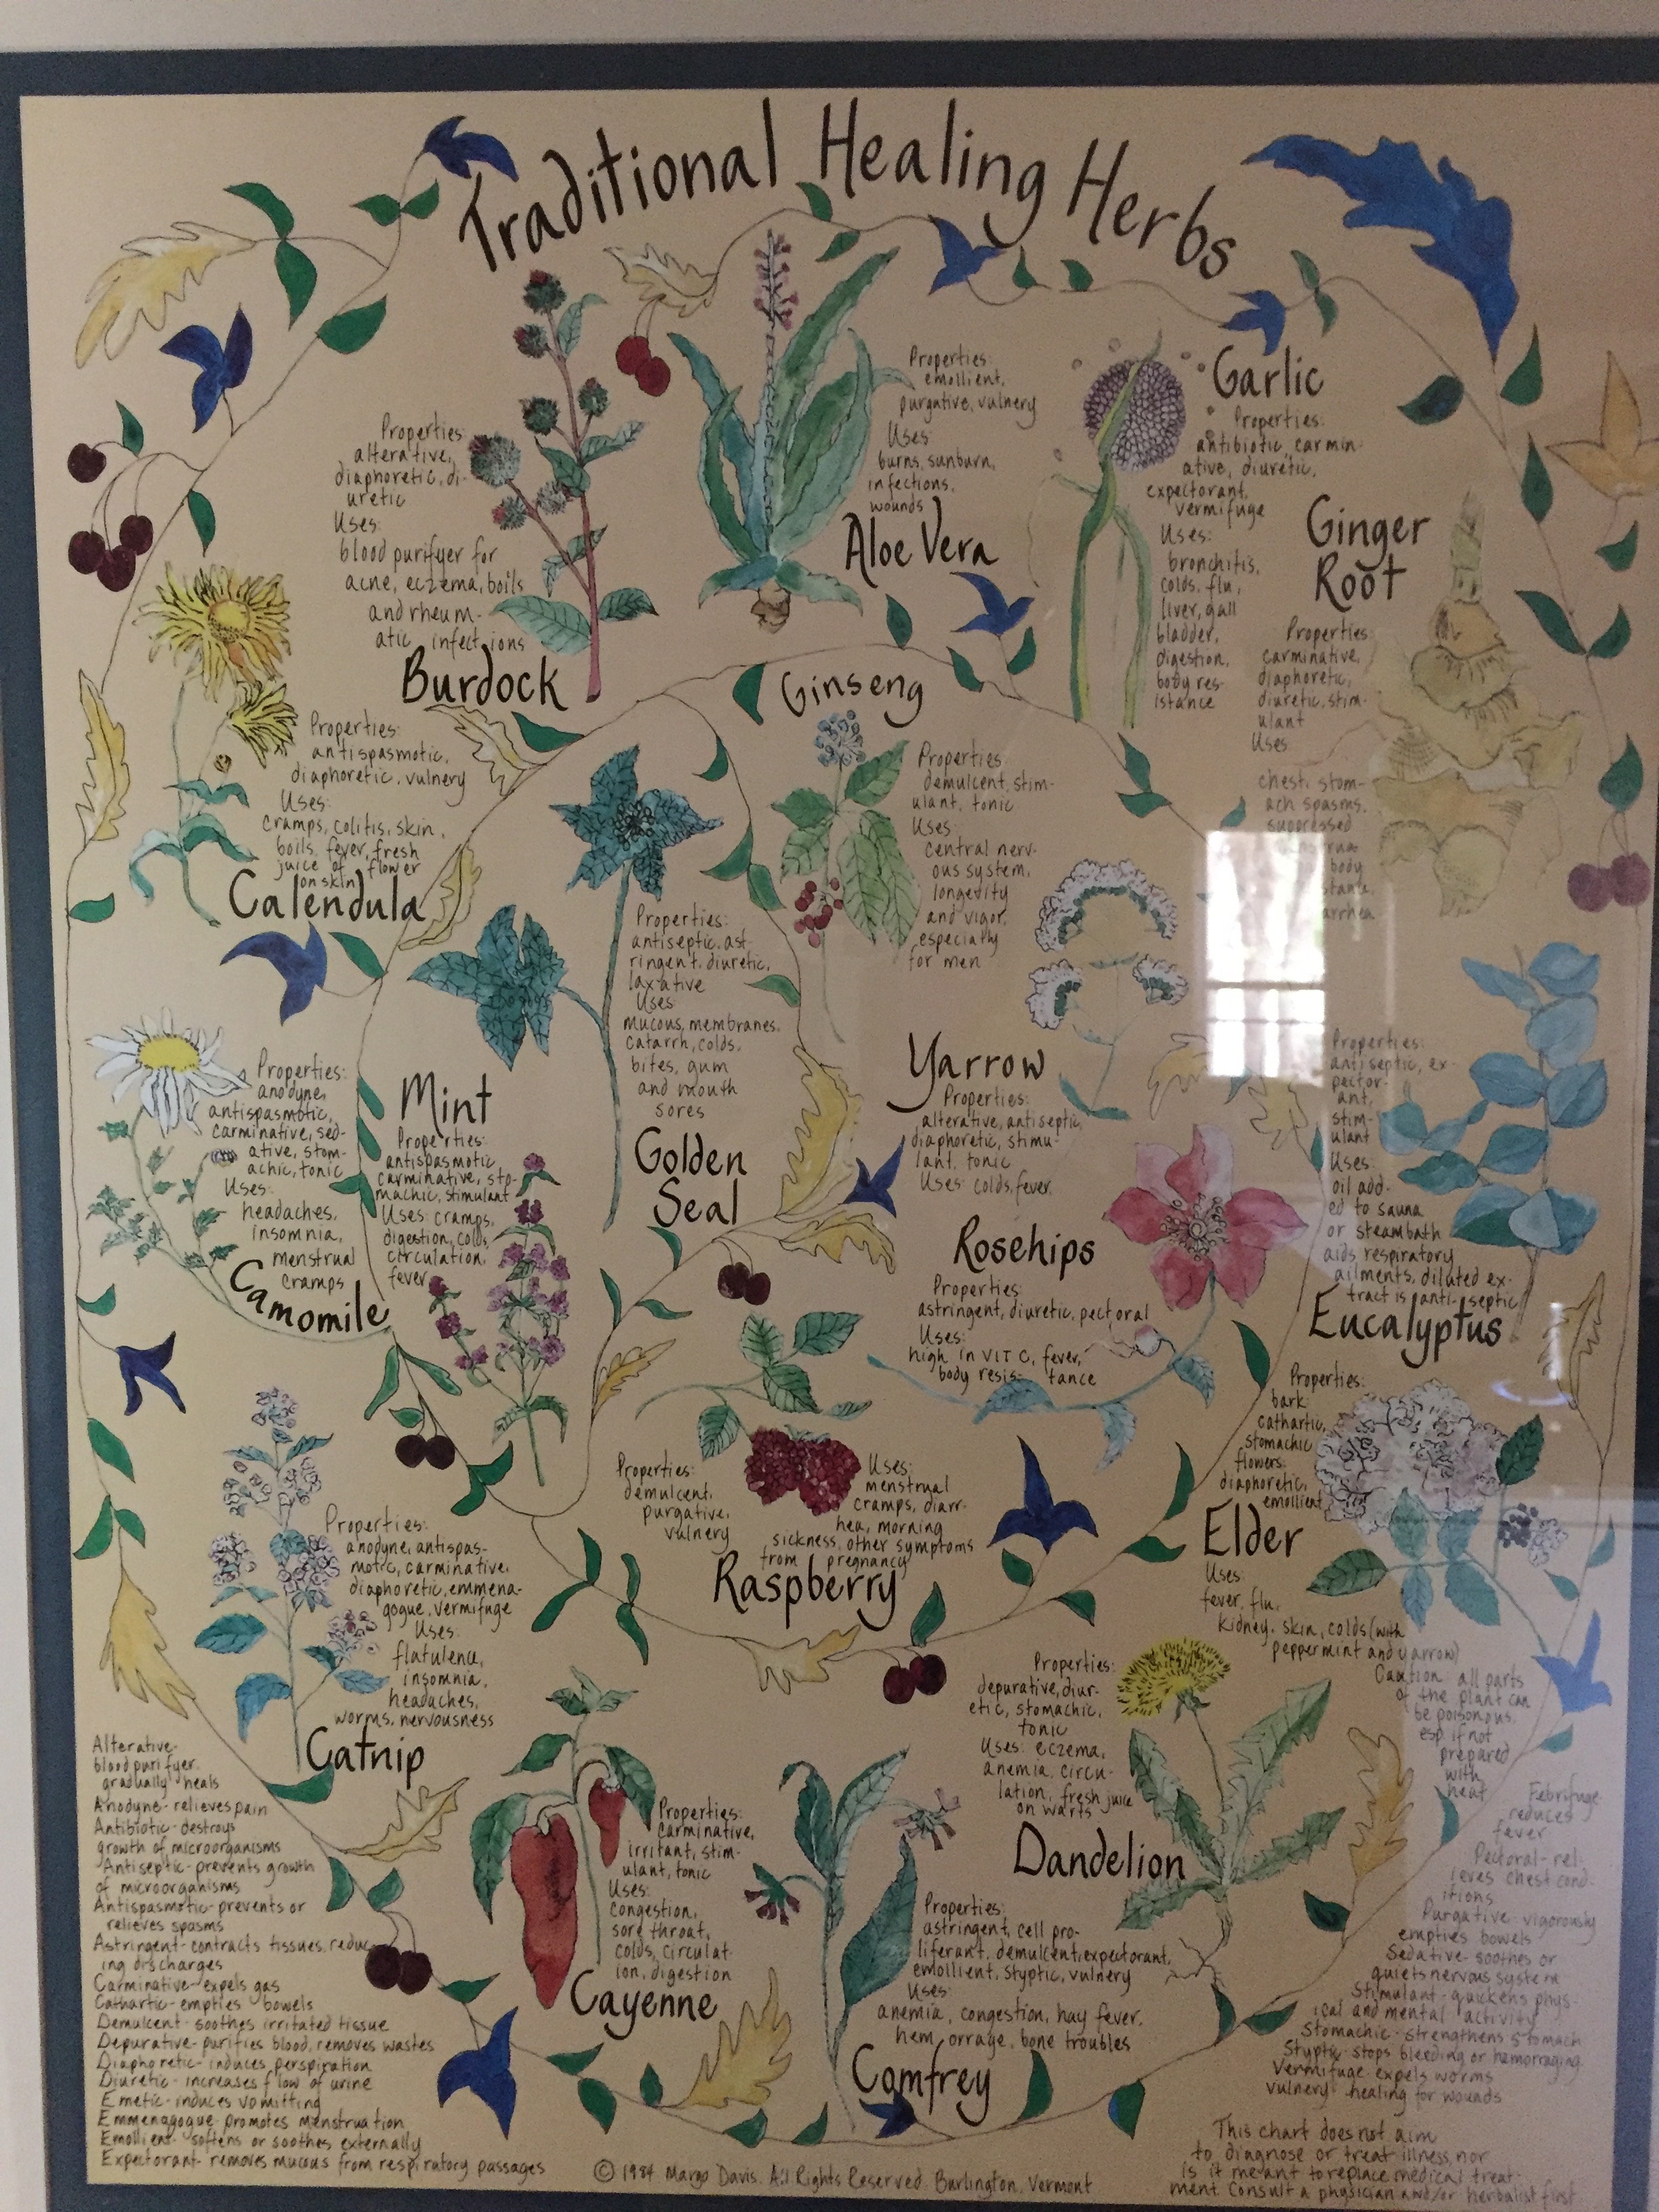 Traditional Healing Herbs
Properties:
alterative,
diaphoretic, di-
uretic
Uses:
blood purifyer for
acne, eczema, boils
and rheum-
atic infections
Burdock
Properties:
emollient,
purgative, vulnery
Uses:
burns, sunburn,
infections,
wounds
Aloe Vera
Garlic
Properties:
antibiotic, carmin-
ative, diuretic,
expectorant,
vermifuge
Uses:
bronchitis,
colds, flu,
liver, gall
bladder,
digestion,
body res-
istance
Ginger
Root
Properties:
carminative,
diaphoretic,
diuretic, stim-
ulant
Uses:
chest, stom-
ach spasms,
suppressed
body
Properties:
antispasmotic,
diaphoretic, vulnery
Uses:
cramps, colitis, skin,
boils, fever, fresh
juice of flower
on skin
Calendula
Ginseng
Properties:
demulcent, stim-
ulant, tonic
Uses:
central nerv-
ous system,
longevity
and vigor,
especially
for men
Properties:
antiseptic, ast-
ringent, diuretic,
laxative
Uses:
mucous, membranes,
catarrh, colds,
bites, gum
and mouth
sores
Golden
Seal
Yarrow
Properties:
alterative, antiseptic,
diaphoretic, stimu-
lant, tonic
Uses: colds, fever,
Properties:
antiseptic, ex-
pector-
ant,
stim-
ulant
Uses:
oil add-
ed to sauna
or steambath
aids respiratory
ailments, diluted ex-
tract is anti-septic
Eucalyptus
Properties:
anodyne,
antispasmotic,
carminative, sed-
ative, stom-
achic, tonic
Uses:
headaches,
insomnia,
menstrual
cramps
Camomile
Mint
Properties:
antispasmotic,
carminative, sto-
machic, stimulant
Uses: cramps,
digestion, colds,
circulation,
fever
Rosehips
Properties:
astringent, diuretic, pectoral
Uses:
high in VIT C, fever,
body resistance
Properties:
demulcent,
purgative,
vulnery
Uses:
menstrual
cramps, diarr-
hea, morning
sickness, other symptoms
from pregnancy
Raspberry
Properties:
bark:
cathartic,
stomachic
flowers:
diaphoretic,
emollient
Elder
Uses:
fever, flu,
kidney, skin, colds (with
peppermint and yarrow)
Caution all parts
of the plant can
be poisonous,
esp if not
prepared
with
heat
Properties:
anodyne, antispas-
motic, carminative,
diaphoretic, emmena-
gogue, vermifuge
Uses:
flatulence,
insomnia,
headaches,
worms, nervousness
Catnip
Properties:
carminative,
irritant, stim-
ulant, tonic
Uses:
congestion,
sore throat,
colds, circulat-
ion, digestion
Cayenne
Properties:
depurative, diur-
etic, stomachic,
tonic
Uses: eczema,
anemia, circu-
lation, fresh juice
on warts
Dandelion
Properties:
astringent, cell pro-
liferant, demulcent, expectorant,
emollient, styptic, vulnery
Uses:
anemia, congestion, hay fever,
hemorrage, bone troubles
Comfrey
Alterative-
blood purifyer,
gradually heals
Anodyne- relieves pain
Antibiotic- destroys
growth of microorganisms
Antiseptic- prevents growth
of microorganisms
Antispasmotic- prevents or
relieves spasms
Astringent- contracts tissues, reduc-
ing discharges
Carminative- expels gas
Cathartic- empties bowels
Demulcent- soothes irritated tissue
Depurative- purifies blood, removes wastes
Diaphoretic- induces perspiration
Diuretic- increases flow of urine
Emetic- induces vomitting
Emmenagogue- promotes menstruation
Emollient- softens or soothes externally
Expectorant- removes mucous from respiratory passages
Febrifuge-
reduces
fever
Pectoral- rel-
ieves chest cond-
itions
Purgative- vigorously
empties bowels
Sedative- soothes or
quiets nervous system
Stimulant- quickens phys-
ical and mental activity
Stomachic- strengthens stomach
Styptic- stops bleeding or hemorraging
Vermifuge- expels worms
Vulnery- healing for wounds
© 1984 Margo Davis. All Rights Reserved. Burlington, Vermont
This chart does not aim
to diagnose or treat illness, nor
is it meant to replace medical treat-
ment. Consult a physician and/or herbalist first